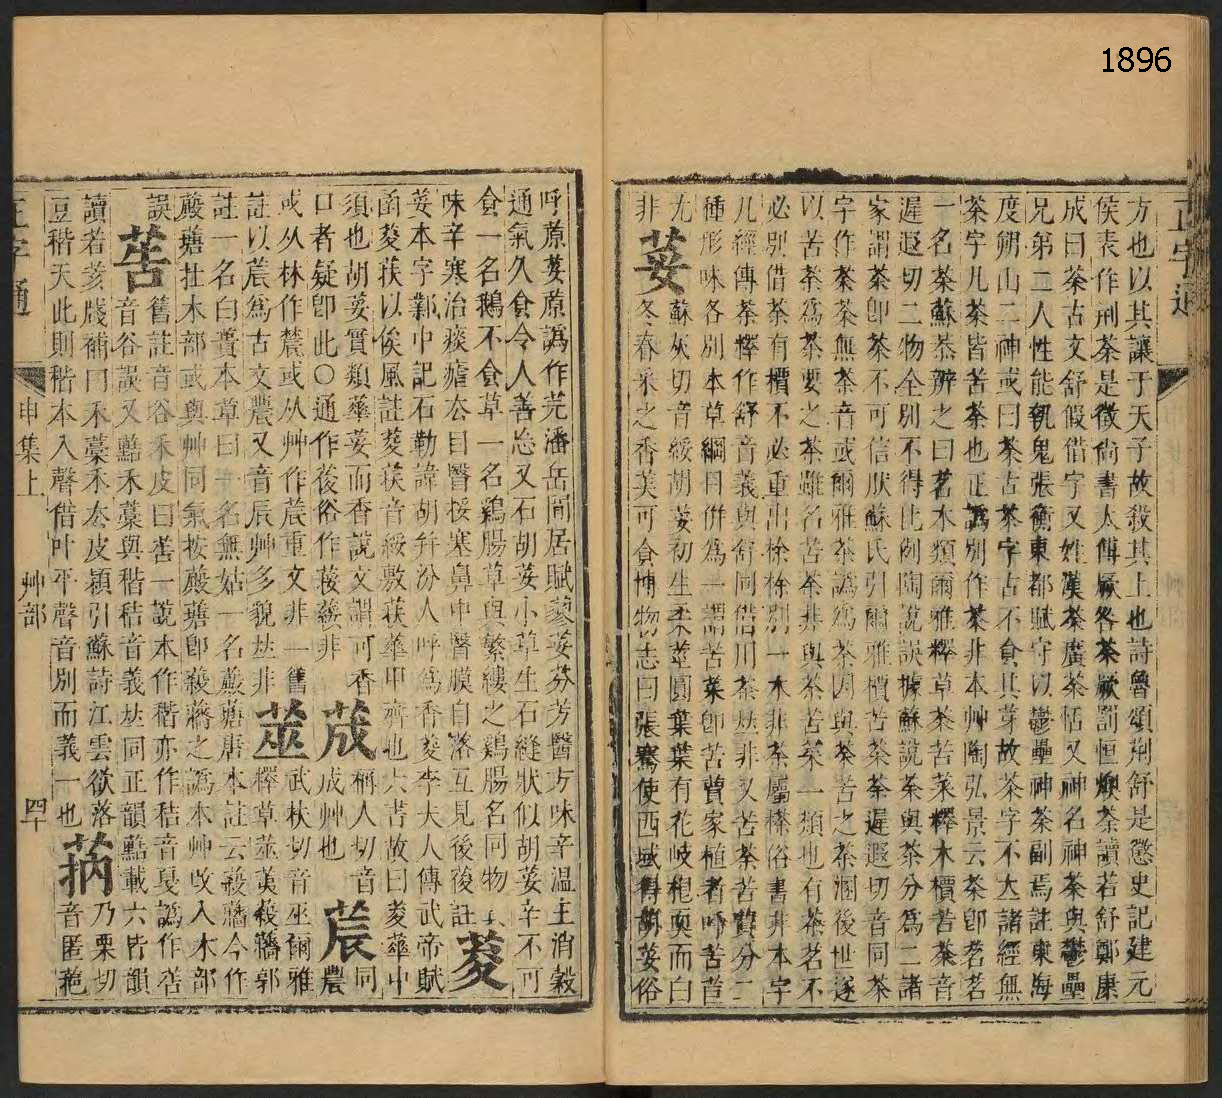 1896
正字通
方也以其讓于天子故殺其上也詩魯頌荊舒是懲史記建元
侯表作荆荼是徵尚書大傳厥咎荼厥罰恒燠荼讀若舒鄭康
成曰荼古文舒假借字又姓漢荼廣荼恬又神名神荼與鬱壘
兄弟二人性能執鬼張衡東都賦守以鬱壘神荼副焉註東海
度朔山二神或曰荼古茶字古不食其芽故茶字不大諸經無
茶字凡荼皆苦荼也正譌別作茶非本艸陶弘景云荼卽茗茗
一名荼蘇恭辨之曰茗木類爾雅釋草荼苦菜釋木檟苦荼音
遲遐切二物全別不得比例陶說誤據蘇說荼與茶分爲二諸
家謂茶卽荼不可信㰱蘇氏引爾雅檟苦荼荼遲遐切音同茶
字作荼荼無茶音或爾雅茶譌爲荼因與荼苦之荼溷後世遂
以苦荼爲茶要之茶雖名苦荼非與荼苦菜一類也有茶茗不
必別借荼有檟不必重出𣘻𣘻別一木非荼屬𣘻俗書非本字
凡經傳荼釋作舒音義與舒同借用荼𠀤非又苦荼苦蕒分二
種形味各別本草綱目併爲一謂苦菜卽苦蕒家植者呼苦苣
尤非
荽 蘇灰切音綏胡荽初生柔莖圓葉葉有花岐根耎而白
冬春采之香美可食博物志曰張騫使西域得胡荽俗
呼蒝荽蒝譌作芫潘岳閒居賦蓼荽芬芳醫方味辛溫主消穀
通氣久食令人善忘又石胡荽小草生石縫狀似胡荽辛不可
食一名鵝不食草一名鷄腸草與繁縷之鷄腸名同物
味辛寒治痰瘧去目醫挼塞鼻中醫膜自落互見後䕑註 荾
荽本字鄴中記石勒諱胡幷汾人呼爲香荾李夫人傳武帝賦
函荾荻以俟風註荾荻音綏敷荻華中齊也大書故曰荾華中
須也胡荽實類華荽而香說文謂可香
口者疑卽此○通作葰俗作䕑荽非 荿 成艸也 䒹 同農
或从林作䢉或从艸作䒹重文非一舊
註以䒹爲古文農又音辰艸多貌𠀤非 莁 武扶切音巫爾雅釋草莁荑䕈蘠郭
註一名白蕢本草曰一名無姑一名䕋𦽏唐本註云䕈蘠今作
䕋𦽏在木部或與艸同氣按䕋𦽏卽䕈蘠之譌本艸收入木部
誤 䓤 舊註音谷禾皮曰䓤一說本作稭亦作秸音戛譌作䓤
音谷誤又𪐝禾藁與稭秸音義𠀤同正韻𪐝載六皆韻
讀若亥牋補曰禾藁禾去皮穎引蘇詩江雲欲落
豆稭天此則稭本入聲借叶平聲音別而義一也 䓇 乃栗切音匿葩
正字通 申集上 艸部 四十